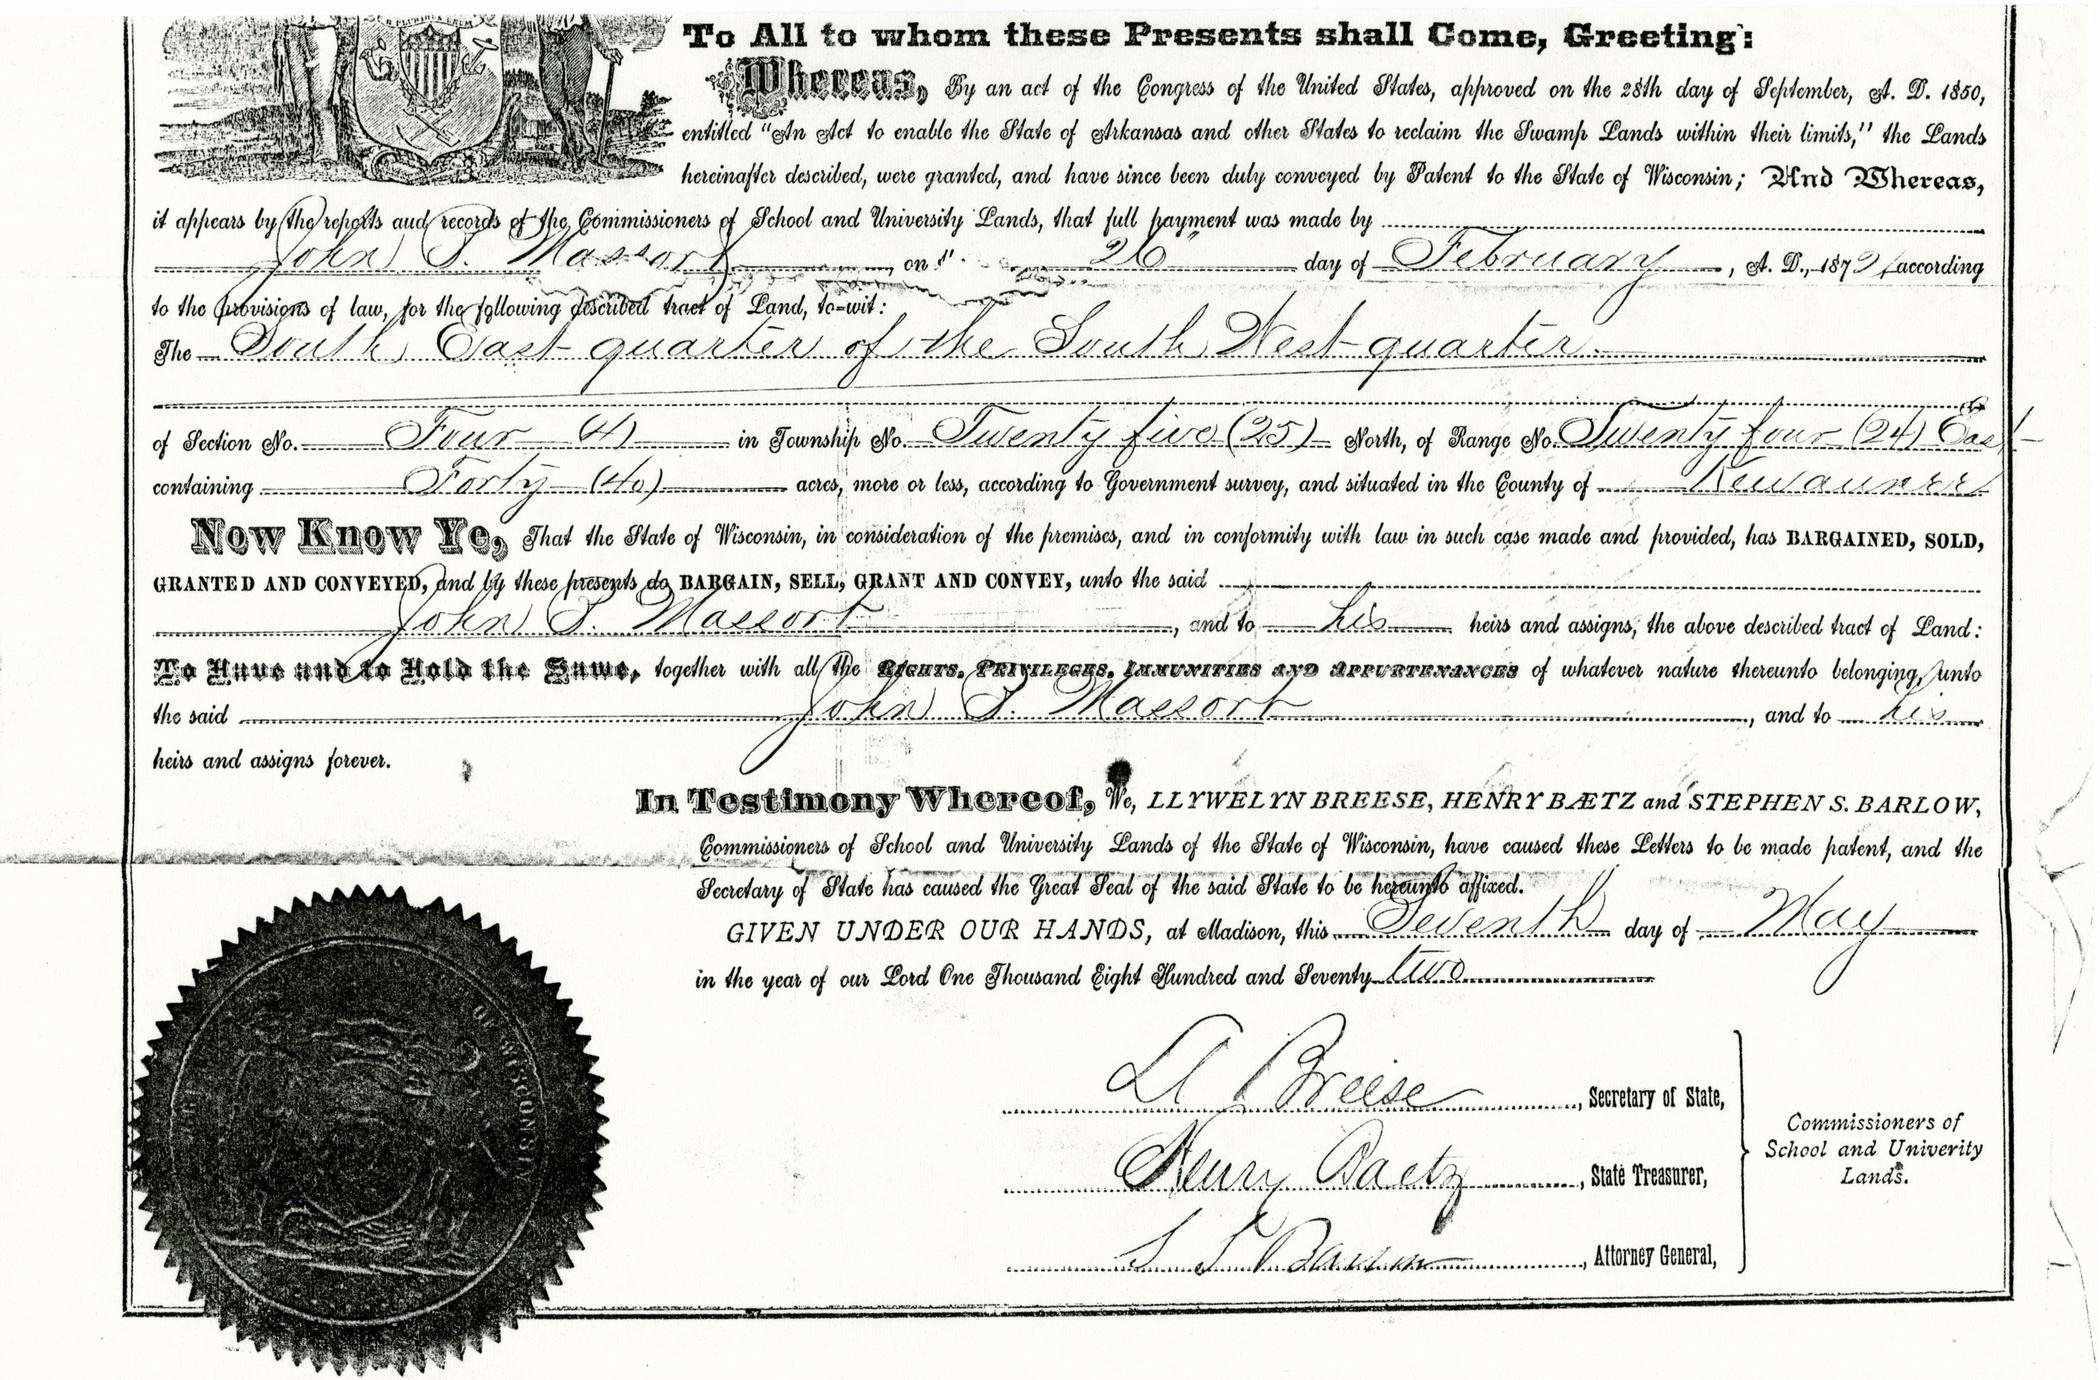 E PLURIBUS UNUM
To All to whom these Presents shall Come, Greeting:
Whereas, By an act of the Congress of the United States, approved on the 28th day of September, A. D. 1850,
entitled "An Act to enable the State of Arkansas and other States to reclaim the Swamp Lands within their limits," the Lands
hereinafter described, were granted, and have since been duly conveyed by Patent to the State of Wisconsin; And Whereas,
it appears by the reports and records of the Commissioners of School and University Lands, that full payment was made by
John S. Massort, on 26" day of February, A. D., 1872, according
to the provisions of law, for the following described tract of Land, to-wit:
The South East quarter of the South West quarter
of Section No. Four (4) in Township No. Twenty five (25) North, of Range No. Twenty four (24) East
containing Forty (40) acres, more or less, according to Government survey, and situated in the County of Kewaunee
Now Know Ye, That the State of Wisconsin, in consideration of the premises, and in conformity with law in such case made and provided, has BARGAINED, SOLD,
GRANTED AND CONVEYED, and by these presents do BARGAIN, SELL, GRANT AND CONVEY, unto the said
John S. Massort, and to his heirs and assigns, the above described tract of Land:
To Have and to Hold the Same, together with all the RIGHTS, PRIVILEGES, IMMUNITIES AND APPURTENANCES of whatever nature thereunto belonging, unto
the said John S. Massort, and to his
heirs and assigns forever.
In Testimony Whereof, We, LLYWELYN BREESE, HENRY BÆTZ and STEPHEN S. BARLOW,
Commissioners of School and University Lands of the State of Wisconsin, have caused these Letters to be made patent, and the
Secretary of State has caused the Great Seal of the said State to be hereunto affixed.
GIVEN UNDER OUR HANDS, at Madison, this Seventh day of May
in the year of our Lord One Thousand Eight Hundred and Seventy two
Ll Breese, Secretary of State,
Henry Baetz, State Treasurer,
S S Barlow, Attorney General,
Commissioners of
School and Univerity
Lands.
OF WISCONSIN